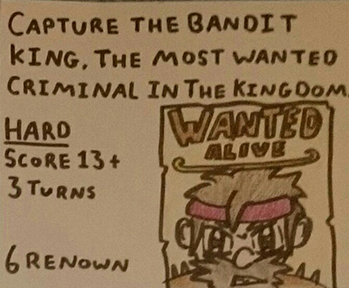 CAPTURE THE BANDIT
KING, THE MOST WANTED
CRIMINAL IN THE KINGDOM
HARD
SCORE 13+
3 TURNS
6 RENOWN
WANTED
ALIVE